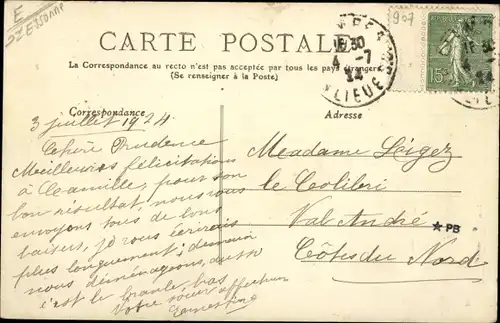 E
S/ESSONNE
907
CARTE POSTALE
La Correspondance au recto n'est pas acceptée par tous les pays étrangers
(Se renseigner à la Poste)
Correspondance
Adresse
3 juillet 1924
Chère Prudence
Meilleures félicitations
à Camille, pour son
bon résultat, nous vous
envoyons tous de bons
baisers, je vous écrirai
plus longuement; demain
nous déménageons, aussi
c'est le branle bas
Votre sœur affectueuse
Ernestine
Madame Légez
le Colibri
Val André
Côtes du Nord
★ PB
15
30
4 -7
24